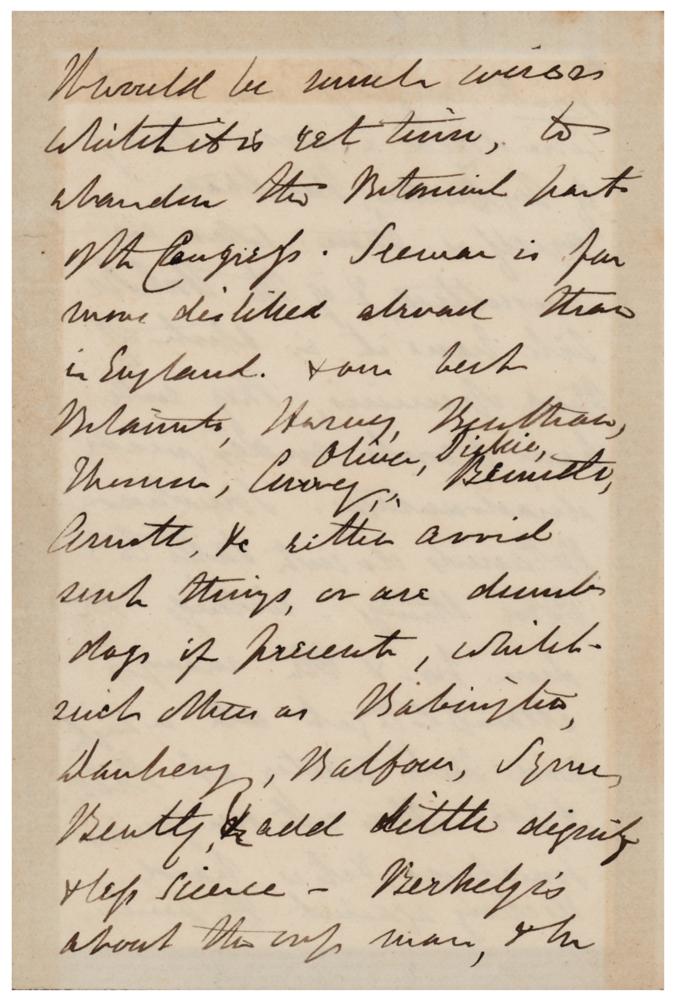 It would be much wiser
whilst it is yet time, to
abandon the Botanical part
of the Congress. Seeman is far
more disliked abroad than
in England. & our best
Botanists, Harvey, Bentham,
Oliver, Dickie,
Thomson, Currey, Bennett,
Arnott, &c either avoid
such things, or are dumb
dogs if present, whilst
such others as Babington,
Daubeny, Balfour, Syme,
Bently, & add little dignity
& less science – Berkeley is
about the only man, & he